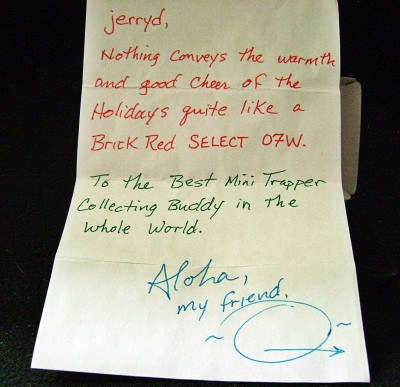 jerryd,
Nothing conveys the warmth
and good cheer of the
Holidays quite like a
Brick Red SELECT 07W.
To the Best Mini Trapper
Collecting Buddy in the
Whole World.
Aloha,
my friend.
~ Q ~